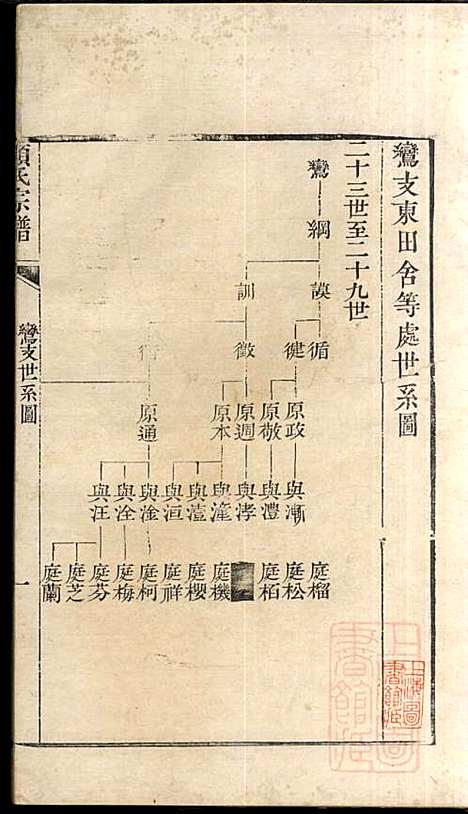 鸞支東田舍等處世系圖
二十三世至二十九世
鸞
綱
謨 訓
循 徤 徵 衍
原政 原敬 原週 原本 原通
與漸 與澧 與涍 與潼 與澐 與洹 與淦 與洤 與汪
庭榴 庭松 庭栢 庭機 庭櫻 庭祥 庭柯 庭梅 庭芬 庭芝 庭蘭
氏宗譜
鸞支世系圖
一
上海圖書館藏